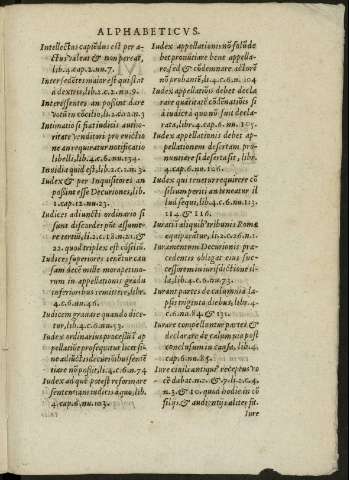 ALPHABETICVS.
Intellectus capiēdus est per a-
ctus valeat & non pereat,
lib.4.cap.2.nu.7.
Inter sedētes maior est qui stat
a dextris, lib.2.c.2.nu.9.
Interessentes an possint dare
votū in cōcilio, li.2.c.20.n.3.
Intimatio si fiat iudicis autho-
ritate venditori pro euictio
ne an requiratur notificatio
libelli, lib.4.c.6.nu.134.
Inuidia quid est, lib.2.c.1.n.3.
Index & per Inquisitores an
possint esse Decuriones, lib.
1.cap.12.nu.23.
Iudices adiuncti ordinario si
sunt discordes pōt assume-
re tertiū, li.2.c.18.n.21.&
22. quod triplex est cōsiliū.
Iudices superiores tenētur cau
sam decē mille morapetino-
rum in appellationis gradu
inferioribus remittere, libr.
4.c.6.nu.46.
Iudicem grauare quando dici-
tur, lib.4.c.6.nu.53.
Iudex ordinarius processū ap
pellatiōe prosequitur licet si-
ne adiūctis decurionibus sentē
tiare nō possit, li.4.c.6.n.74
Iudex ad quē potest reformare
sententiam iudicis a quo, lib.
4.cap.6.nu.103.
Iudex appellationis nō solū de
bet pronūtiare bene appella-
re, sed & cōdemnare actorē
nō probantē, li.4.c.6.n.104
Iudex appellatiōis debet decla
rare quātitatē cōdēnatiōis si
à iudice a quo nō fuit decla-
rata, libr.4.cap.6.nu.105.
Iudex appellationis debet ap-
pellationem desertam pro-
nuntiare si deserta sit, libr.
4.cap.6.nu.126.
Iudex qui tenetur requirere cō
silium periti an teneatur il
lud sequi, lib.4.c.6.nu.113.
114.& 116.
Iurati i aliquib' tribunis Romæ
equiparātur, li.2.c.26.n.1.
Iuramentum Decurionis præ-
cedentis obligat eius suc-
cessorem in iurisdictione il-
la, lib.4.c.6.nu.73.
Iurant partes de calumnia la-
psis triginta diebus, lib.4.
c.6.nu.84.& 131.
Iurare compellantur partes &
declarare de calumnia post
conclusum in causa, lib.4.
cap.6.nu.85.
Iure ciuili antiquo receptus vo
cē dabat. n.2.& 7. li.2.c.4.
n.3.& 10. quod hodie in cō
silijs & audientijs aliter fit.
Iure